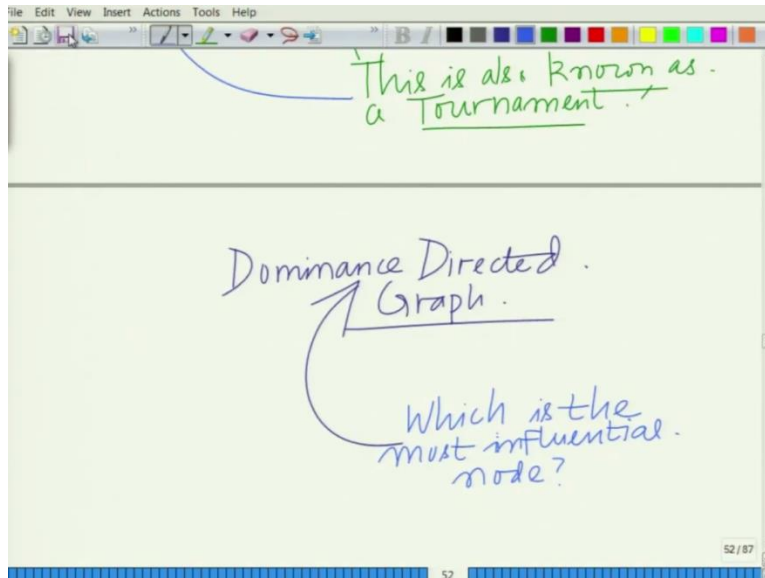 File Edit View Insert Actions Tools Help
B I
This is also known as.
a Tournament.
Dominance Directed.
Graph.
Which is the
most influential.
node?
52/87
52